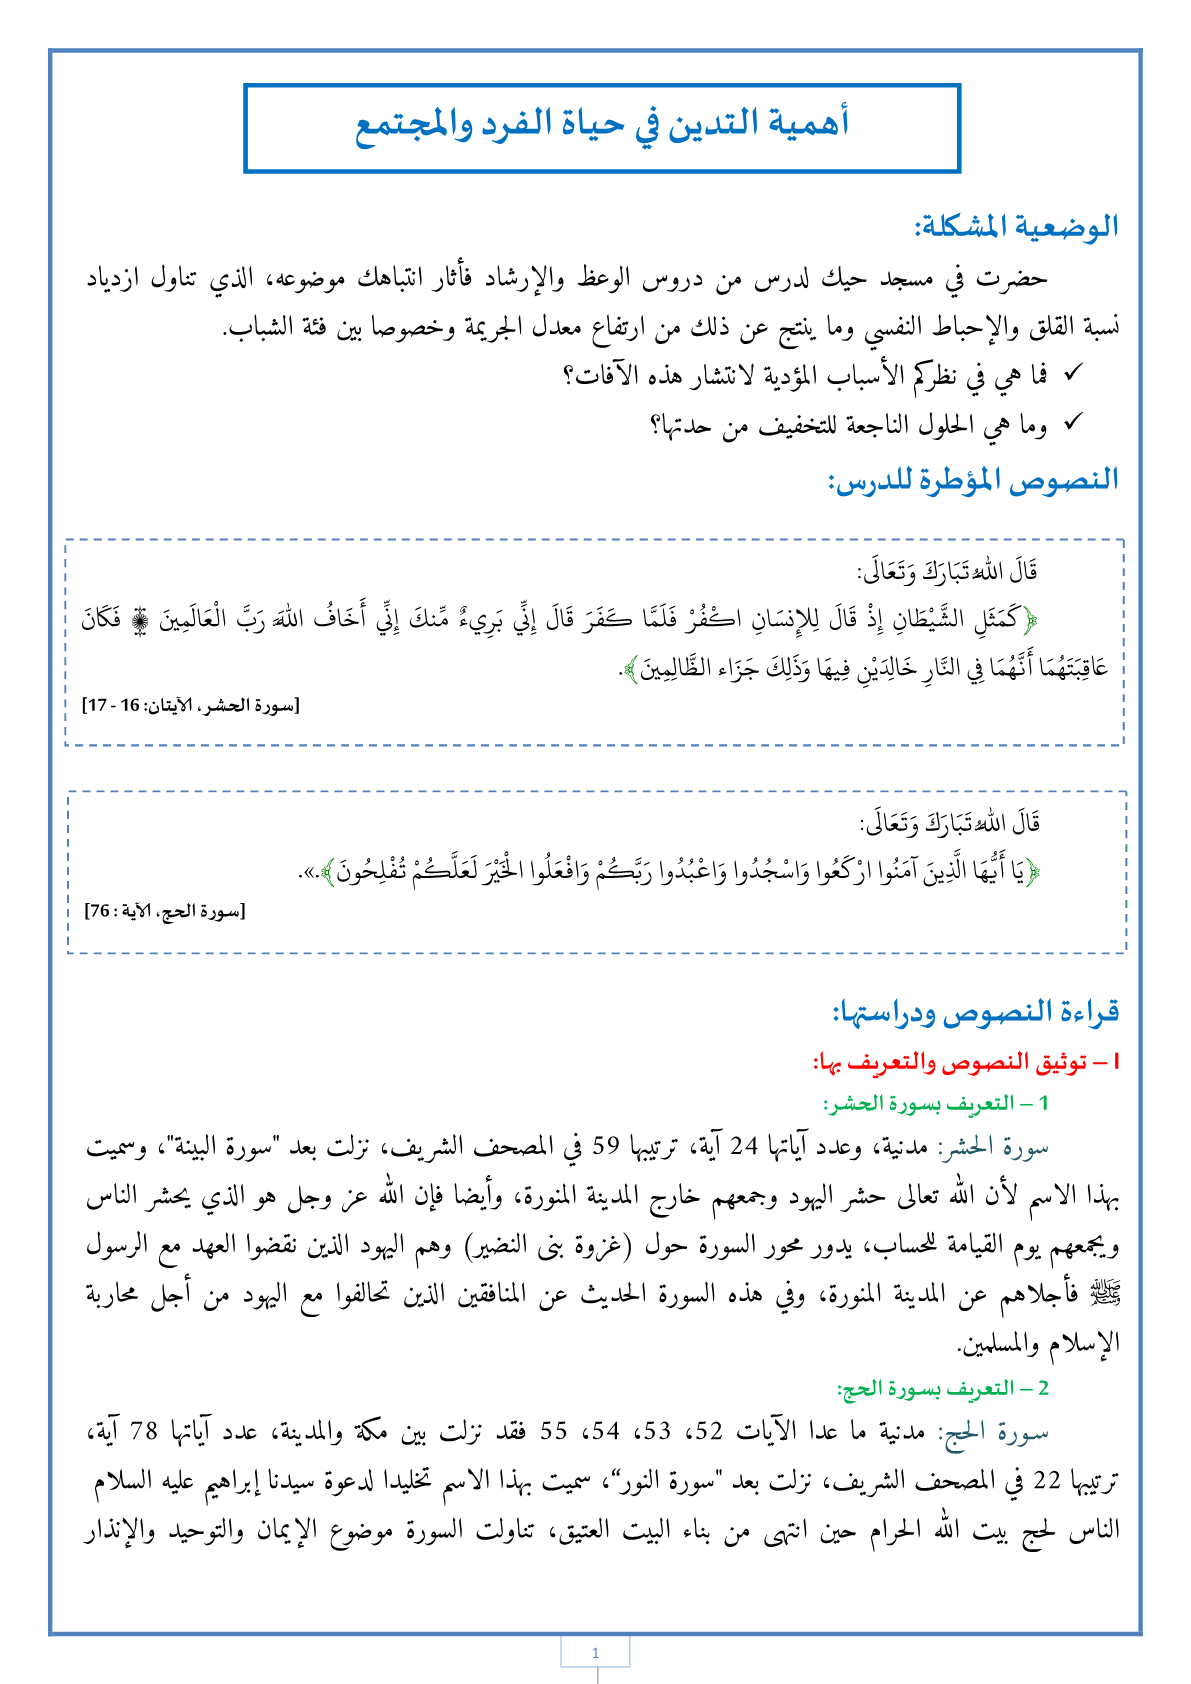 أهمية التدين في حياة الفرد والمجتمع
الوضعية المشكلة:
حضرت في مسجد حيك لدرس من دروس الوعظ والإرشاد فأثار انتباهك موضوعه، الذي تناول ازدياد
نسبة القلق والإحباط النفسي وما ينتج عن ذلك من ارتفاع معدل الجريمة وخصوصا بين فئة الشباب.
✓ فما هي في نظركم الأسباب المؤدية لانتشار هذه الآفات؟
✓ وما هي الحلول الناجعة للتخفيف من حدتها؟
النصوص المؤطرة للدرس:
قَالَ اللهُ تَبَارَكَ وَتَعَالَى:
﴿كَمَثَلِ الشَّيْطَانِ إِذْ قَالَ لِلإِنسَانِ اكْفُرْ فَلَمَّا كَفَرَ قَالَ إِنِّي بَرِيءٌ مِّنكَ إِنِّي أَخَافُ اللهَ رَبَّ الْعَالَمِينَ ۞ فَكَانَ
عَاقِبَتَهُمَا أَنَّهُمَا فِي النَّارِ خَالِدَيْنِ فِيهَا وَذَلِكَ جَزَاء الظَّالِمِينَ﴾.
[سورة الحشر، الآيتان: 16 - 17]
قَالَ اللهُ تَبَارَكَ وَتَعَالَى:
﴿يَا أَيُّهَا الَّذِينَ آمَنُوا ارْكَعُوا وَاسْجُدُوا وَاعْبُدُوا رَبَّكُمْ وَافْعَلُوا الْخَيْرَ لَعَلَّكُمْ تُفْلِحُونَ﴾.».
[سورة الحج، الآية : 76]
قراءة النصوص ودراستها:
I – توثيق النصوص والتعريف بها:
1 – التعريف بسورة الحشر:
سورة الحشر: مدنية، وعدد آياتها 24 آية، ترتيبها 59 في المصحف الشريف، نزلت بعد "سورة البينة"، وسميت
بهذا الاسم لأن الله تعالى حشر اليهود وجمعهم خارج المدينة المنورة، وأيضا فإن الله عز وجل هو الذي يحشر الناس
ويجمعهم يوم القيامة للحساب، يدور محور السورة حول (غزوة بنى النضير) وهم اليهود الذين نقضوا العهد مع الرسول
ﷺ فأجلاهم عن المدينة المنورة، وفي هذه السورة الحديث عن المنافقين الذين تحالفوا مع اليهود من أجل محاربة
الإسلام والمسلمين.
2 – التعريف بسورة الحج:
سورة الحج: مدنية ما عدا الآيات 52، 53، 54، 55 فقد نزلت بين مكة والمدينة، عدد آياتها 78 آية،
ترتيبها 22 في المصحف الشريف، نزلت بعد "سورة النور“، سميت بهذا الاسم تخليدا لدعوة سيدنا إبراهيم عليه السلام
الناس لحج بيت الله الحرام حين انتهى من بناء البيت العتيق، تناولت السورة موضوع الإيمان والتوحيد والإنذار
1